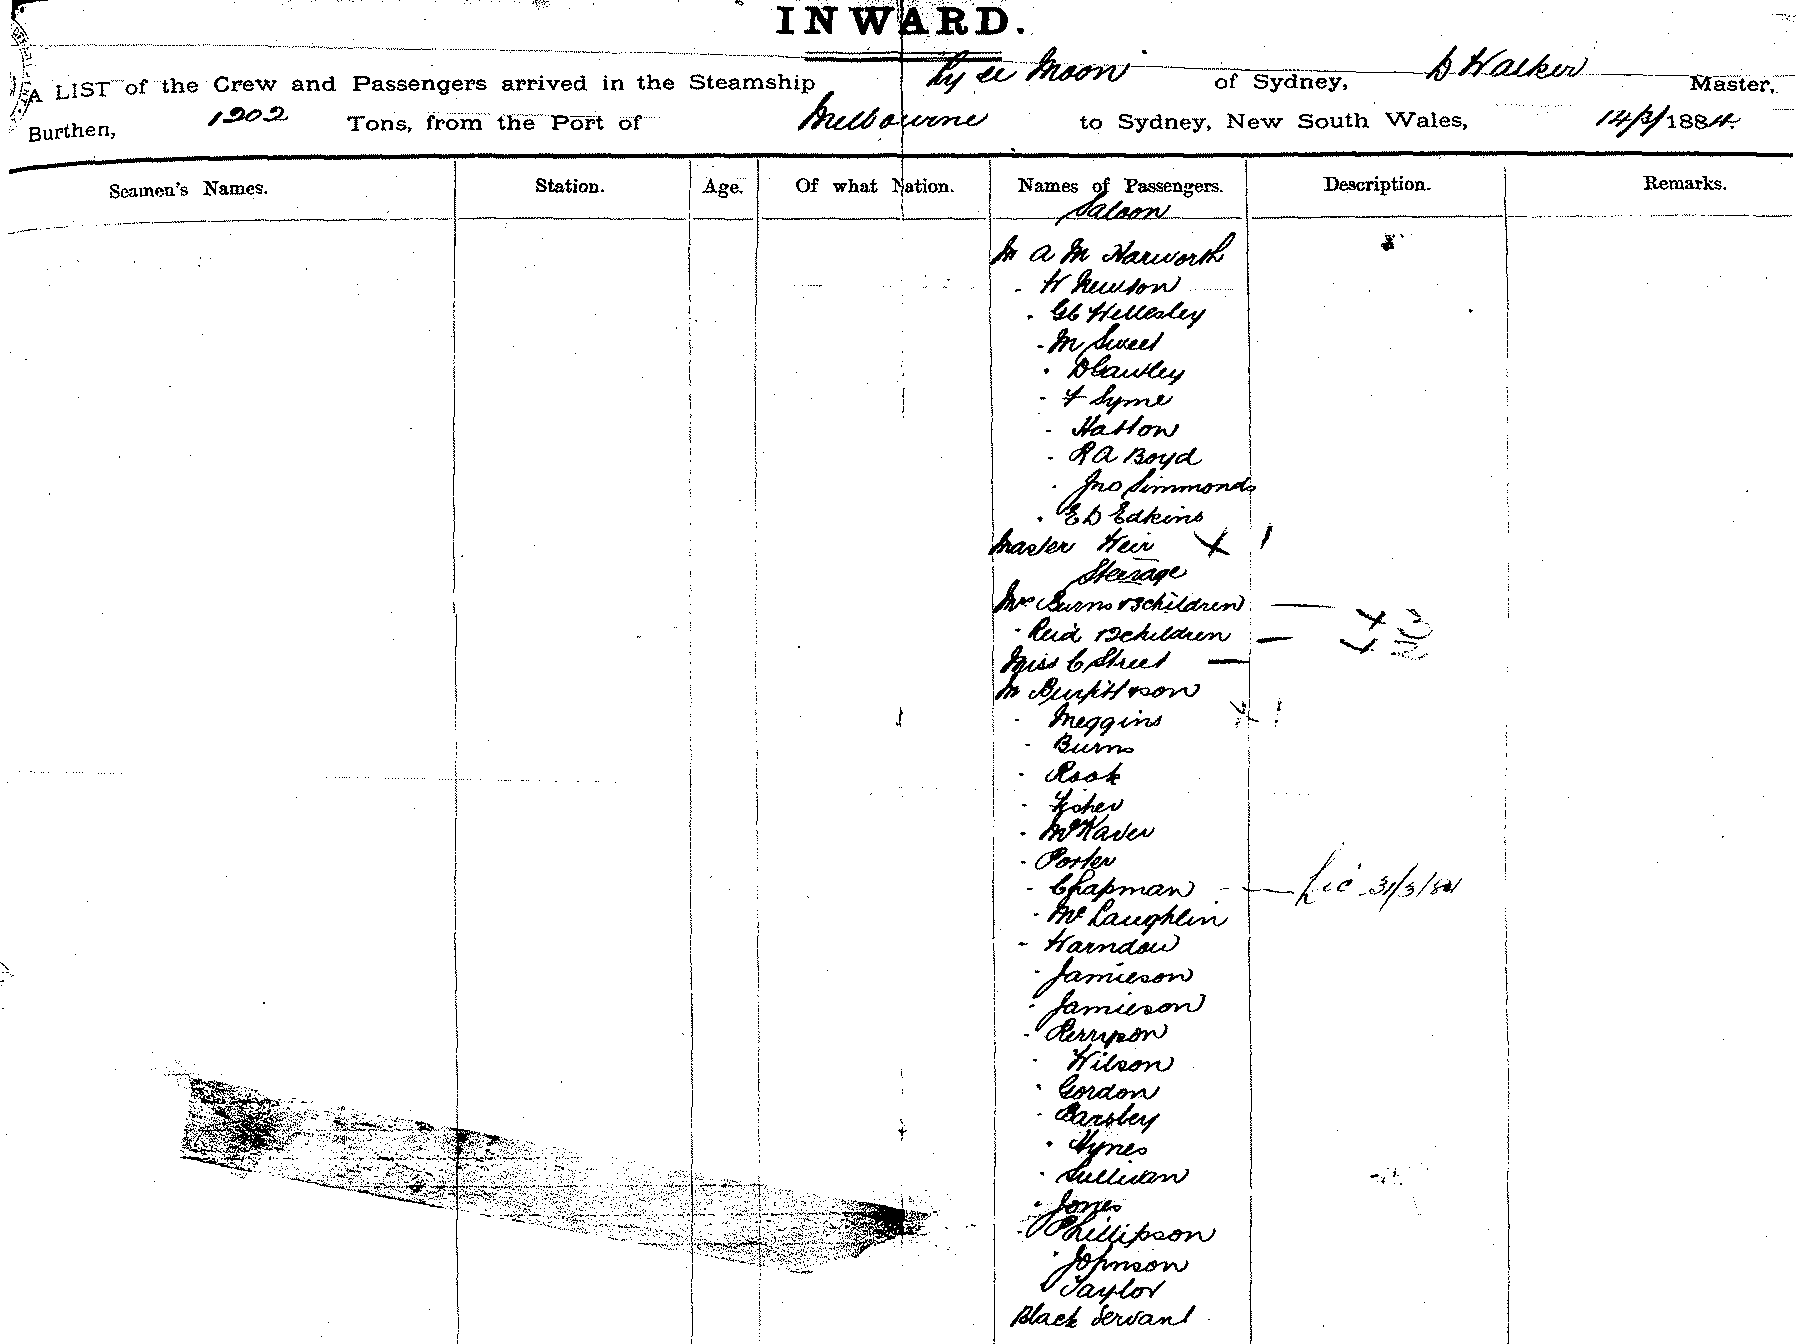 INWARD.
A LIST of the Crew and Passengers arrived in the Steamship Ly ee Moon of Sydney, D Walker Master,
Burthen, 1202 Tons, from the Port of Melbourne to Sydney, New South Wales, 14/3/1884.
Seamen's Names. Station. Age. Of what Nation. Names of Passengers. Description. Remarks.
Saloon
Mr A M Harworth
- W Newton
- Wellesley
- M Sweet
- Cautley
- F Syme
- Hatton
- R A Boyd
- Jno Simmonds
- E D Edkins
Master Weir X 1
Steerage
Mrs Burns & 3 children
- Reid & 2 children
Miss C Street
Mr & son
- Meggins
- Burns
- Rook
- Fisher
- McKaver
- Porter
- Chapman Lic 31/3/84
- McLaughlin
- Warndau
- Jamieson
- Jamieson
- Perryson
- Wilson
- Gordon
- Barsley
- Hynes
- Sullivan
- Jones
- Phillipson
- Johnson
Taylor
Black Servant